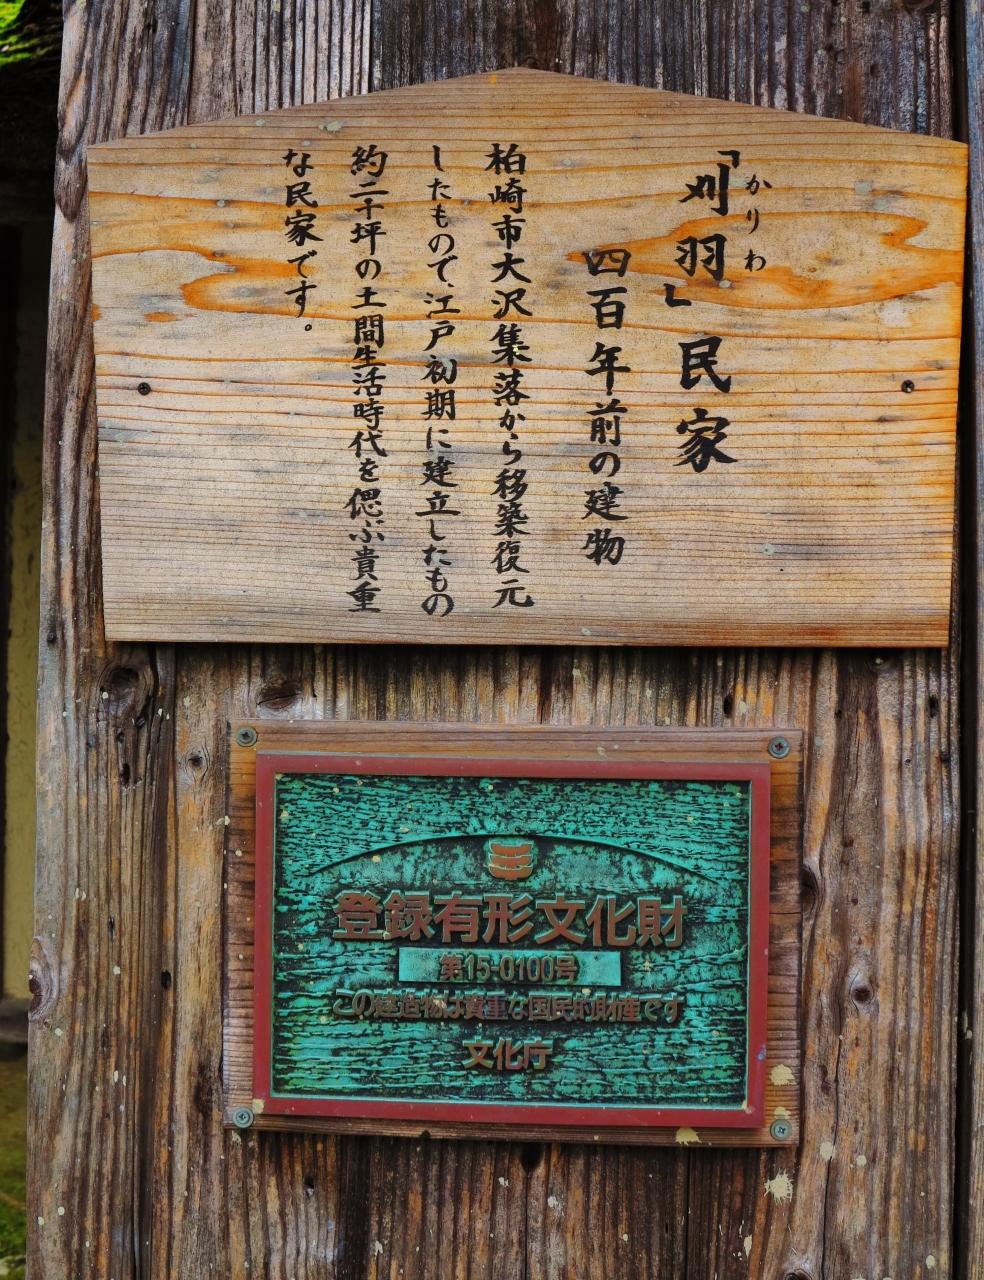 「刈羽」民家
かりわ
四百年前の建物
柏崎市大沢集落から移築復元
したもので、江戸初期に建立したもの
約二十坪の土間生活時代を偲ぶ貴重
な民家です。
登録有形文化財
第15-0100号
この建造物は貴重な国民的財産です
文化庁